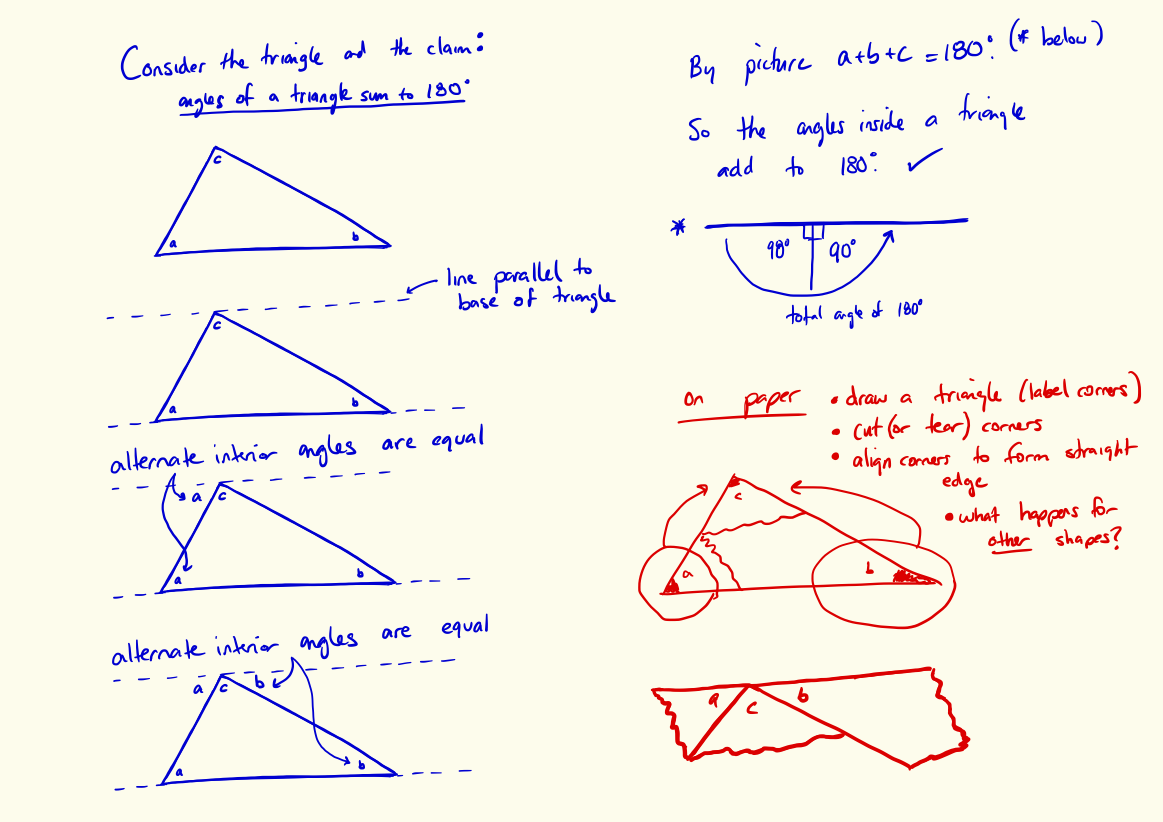 Consider the triangle and the claim:
angles of a triangle sum to 180°
c
a
b
line parallel to
base of triangle
c
a
b
alternate interior angles are equal
a
c
a
b
alternate interior angles are equal
a
c
b
a
b
By picture a+b+c = 180°. (* below)
So the angles inside a triangle
add to 180°. ✓
*
90°
90°
total angle of 180°
on paper
• draw a triangle (label corners)
• cut (or tear) corners
• align corners to form straight
edge
• what happens for
other shapes?
c
a
b
a
c
b